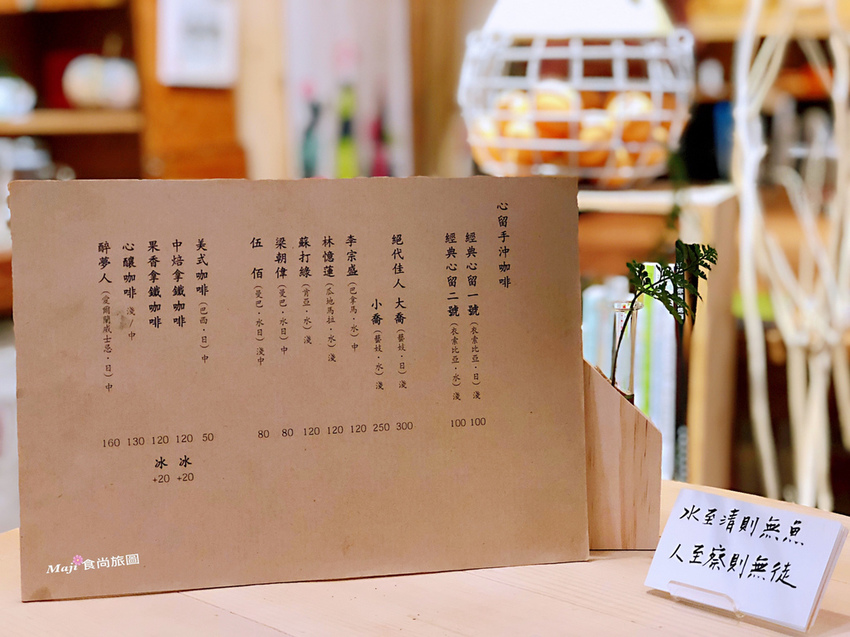 心留手沖咖啡
經典心留一號(衣索比亞·日)淺 100
經典心留二號(衣索比亞·水)淺 100
絕代佳人 大喬(藝妓·日)淺 300
小喬(藝妓·水)淺 250
李宗盛(巴拿馬·水)中 120
林憶蓮(瓜地馬拉·水)淺 120
蘇打綠(肯亞·水)淺 120
梁朝偉(曼巴·水日)中 80
伍佰(曼巴·水日)淺中 80
美式咖啡(巴西·日)中 50
中焙拿鐵咖啡 120 冰+20
果香拿鐵咖啡 120 冰+20
心釀咖啡 淺/中 130
醉夢人(愛爾蘭威士忌·日)中 160
Maji 食尚旅圖
水至清則無魚
人至察則無徒